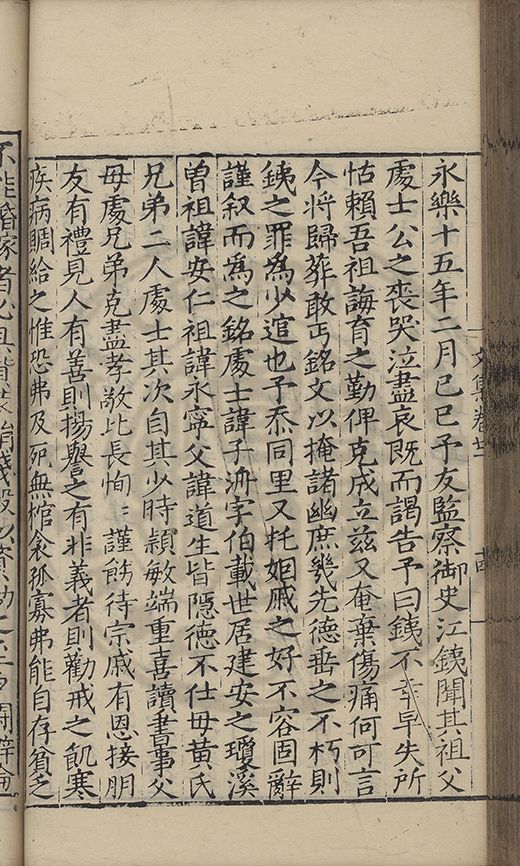 永樂十五年二月己巳予友監察御史江銕聞其祖父
處士公之喪哭泣盡哀既而謁告予曰銕不幸早失所
怙賴吾祖誨育之勤俾克成立茲又奄棄傷痛何可言
今將歸葬敢丐銘文以掩諸幽庶幾先德垂之不朽則
銕之罪為少逭也予忝同里又托姻戚之好不容固辭
謹叙而為之銘處士諱子㳺字伯載世居建安之瓊溪
曾祖諱安仁祖諱永寧父諱道生皆隱德不仕母黃氏
兄弟二人處士其次自其少時頴敏端重喜讀書事父
母處兄弟克盡孝敬比長恂〻謹飭待宗戚有恩接朋
友有禮見人有善則揚譽之有非義者則勸戒之飢寒
疾病賙給之惟恐弗及死無棺衾孤寡弗能自存貧乏
不能婚嫁者必
文集卷廿